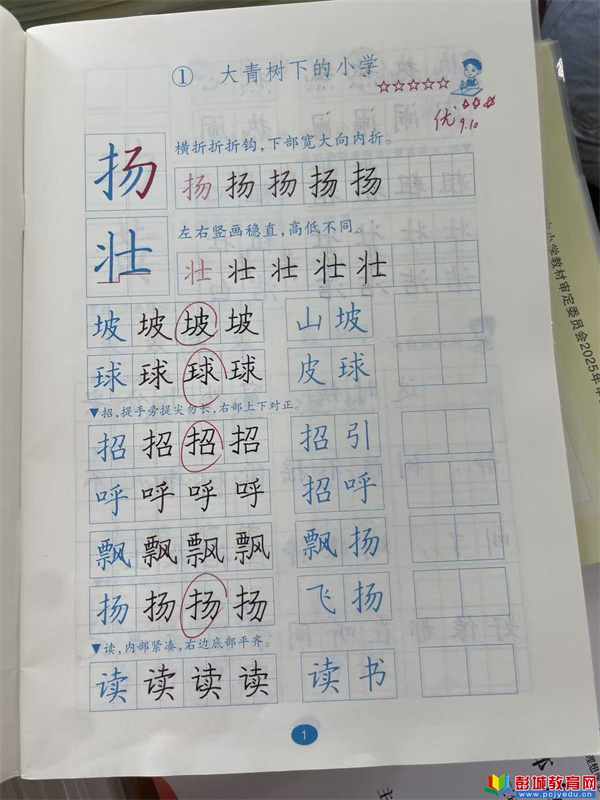 ① 大青树下的小学
☆☆☆☆☆ ☆☆☆
优
9.10
扬 横折折折钩，下部宽大向内折。
扬扬扬扬扬
壮 左右竖画稳直，高低不同。
壮壮壮壮壮
坡坡坡坡 山坡
球球球球 皮球
▼招，提手旁提尖勿长，右部上下对正。
招招招招 招引
呼呼呼呼 招呼
飘飘飘飘 飘扬
扬扬扬扬 飞扬
▼读，内部紧凑，右边底部平齐。
读读读读 读书
1
小学教材审定委员会2025年审
彭城教育网
www.pcjyedu.cn